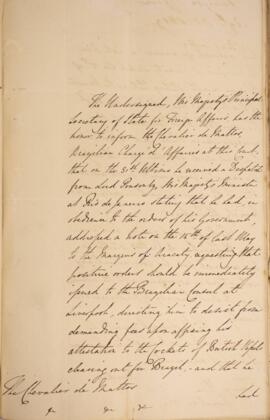 The Undersigned, His Majesty's Principal
Secretary of State for Foreign Affairs, has the
honor to inform the Chevalier de Mattos,
Brazilian Chargé d'Affaires at this Court,
that on the 31st Ultimo he received a Despatch
from Lord Ponsonby, His Majesty's Minister
at Rio de Janeiro stating that he had, in
obedience to the orders of his Government
addressed a note on the 16th of last May
to the Marquis of Aracaty, requesting that
positive orders should be immediately
issued to the Brazilian Consul at
Liverpool, directing him to desist from
demanding fees upon affixing his
attestation to the Cockets of British Vessels
clearing out for Brazil, and that he
had
The Chevalier de Mattos